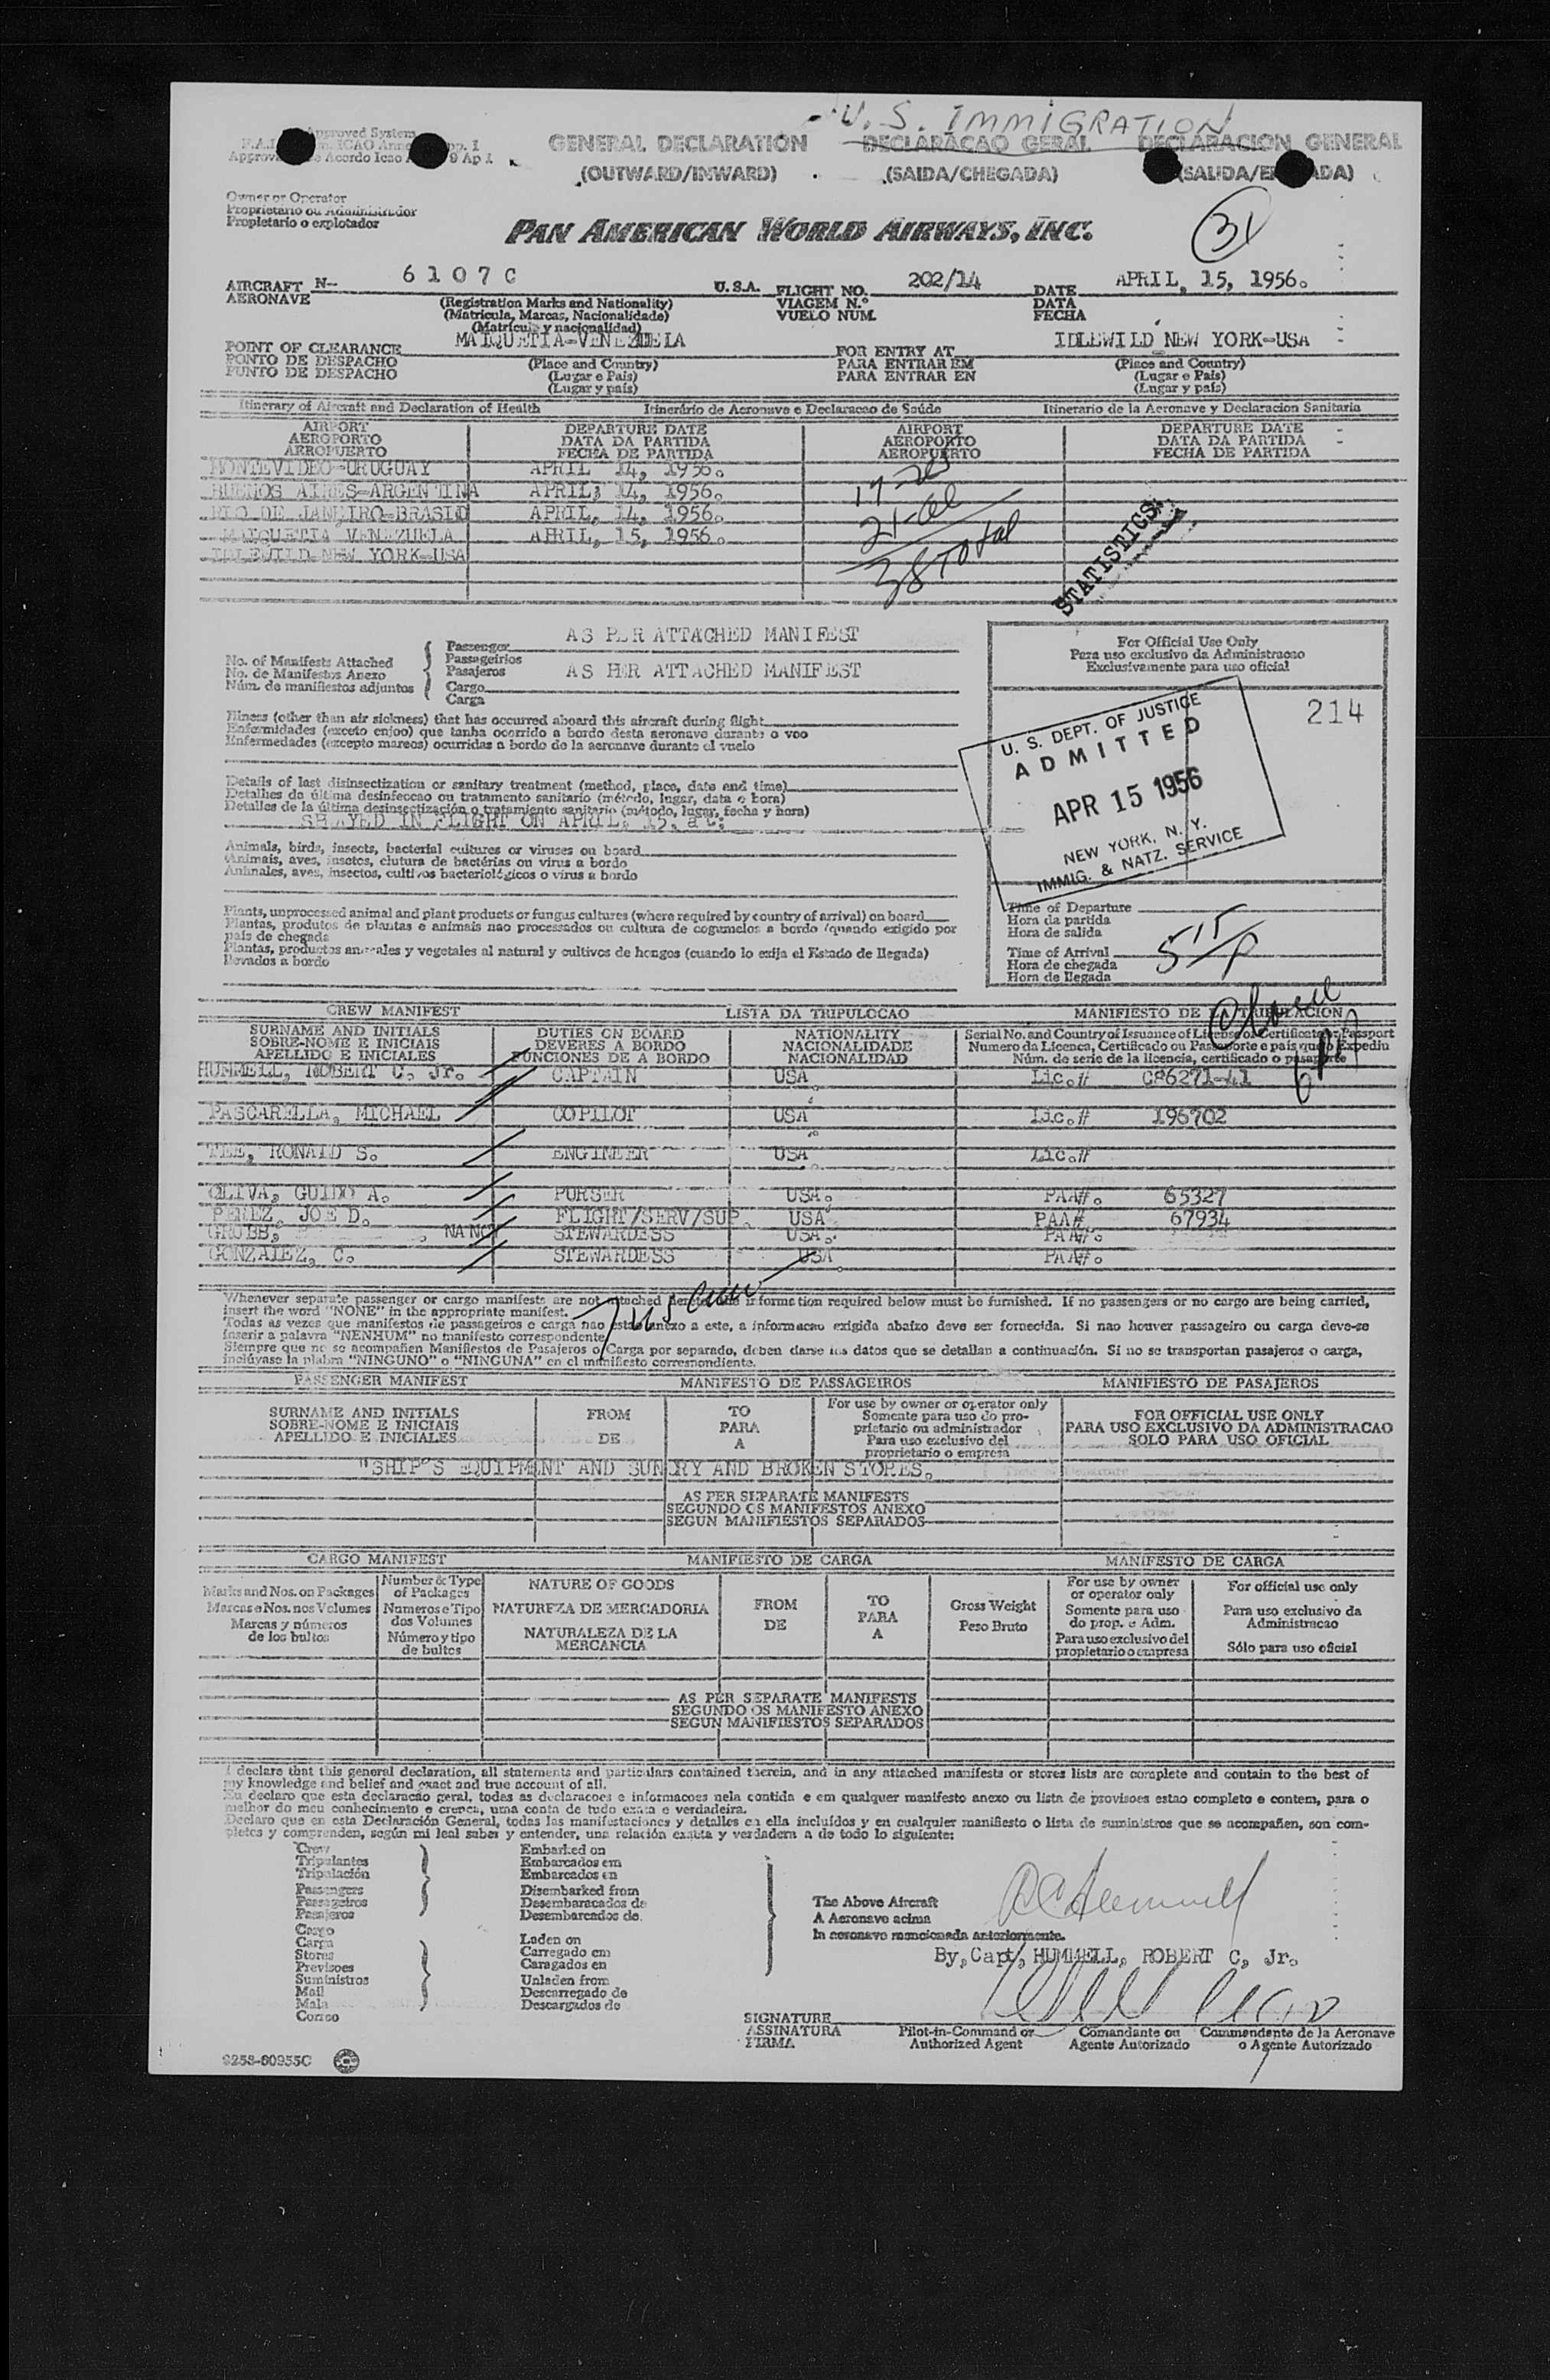 U. S. IMMIGRATION
Approved System
GENERAL DECLARATION DECLARACAO GERAL DECLARACION GENERAL
(OUTWARD/INWARD) (SAIDA/CHEGADA) (SALIDA/
Owner or Operator
Proprietario ou Administrador
Propietario o explotador
PAN AMERICAN WORLD AIRWAYS, INC.
31
AIRCRAFT N- 6 1 0 7 C U.S.A. FLIGHT NO. 202/14 DATE APRIL, 15, 1956.
AERONAVE (Registration Marks and Nationality) VIAGEM N.º DATA
(Matricula, Marcas, Nacionalidade) VUELO NUM. FECHA
(Matricula y nacionalidad)
MAIQUETIA-VENEZUELA IDLEWILD NEW YORK-USA
POINT OF CLEARANCE FOR ENTRY AT
PONTO DE DESPACHO (Place and Country) PARA ENTRAR EM (Place and Country)
PUNTO DE DESPACHO (Lugar e País) PARA ENTRAR EN (Lugar e País)
(Lugar y país) (Lugar y país)
Itinerary of Aircraft and Declaration of Health Itinerário de Aeronave e Declaracao de Saúde Itinerario de la Aeronave y Declaracion Sanitaria
AIRPORT DEPARTURE DATE AIRPORT DEPARTURE DATE
AEROPORTO DATA DA PARTIDA AEROPORTO DATA DA PARTIDA
AEROPUERTO FECHA DE PARTIDA AEROPUERTO FECHA DE PARTIDA
MONTEVIDEO-URUGUAY APRIL 14, 1956.
BUENOS AIRES-ARGENTINA APRIL, 14, 1956.
RIO DE JANEIRO-BRASIL APRIL, 14, 1956.
MAIQUETIA VENEZUELA APRIL, 15, 1956.
IDLEWILD NEW YORK-USA
17
21
38 Total
STATISTICS
AS PER ATTACHED MANIFEST
Passenger
No. of Manifests Attached Passageirios
No. de Manifestos Anexo Pasajeros AS PER ATTACHED MANIFEST
Núm. de manifiestos adjuntos Cargo
Carga
For Official Use Only
Para uso exclusivo da Administracao
Exclusivamente para uso oficial
214
U. S. DEPT. OF JUSTICE
ADMITTED
APR 15 1956
NEW YORK, N. Y.
IMMIG. & NATZ. SERVICE
Illness (other than air sickness) that has occurred aboard this aircraft during flight
Enfermidades (exceto enjoo) que tanha ocorrido a bordo desta aeronave durante o voo
Enfermedades (excepto mareos) ocurridas a bordo de la aeronave durante el vuelo
Details of last disinsectization or sanitary treatment (method, place, date and time)
Detalhes da última desinfeccao ou tratamento sanitario (método, lugar, data e hora)
Detalles de la última desinsectización o tratamiento sanitario (método, lugar, fecha y hora)
SPRAYED IN FLIGHT ON APRIL, 15, at:
Animals, birds, insects, bacterial cultures or viruses on board
Animais, aves, insetos, clutura de bactérias ou virus a bordo
Animales, aves, insectos, cultivos bacteriológicos o virus a bordo
Plants, unprocessed animal and plant products or fungus cultures (where required by country of arrival) on board
Plantas, produtos de plantas e animais nao processados ou cultura de cogumelos a bordo (quando exigido por
pais de chegada
Plantas, productos animales y vegetales al natural y cultivos de hongos (cuando lo exija el Estado de llegada)
llevados a bordo
Time of Departure
Hora da partida
Hora de salida
Time of Arrival 515 P
Hora de chegada
Hora de llegada
CREW MANIFEST LISTA DA TRIPULCCAO MANIFIESTO DE LA TRIPULACION
SURNAME AND INITIALS DUTIES ON BOARD NATIONALITY Serial No. and Country of Issuance of License or Certificate or Passport
SOBRE-NOME E INICIAIS DEVERES A BORDO NACIONALIDADE Numero da Licenca, Certificado ou Passaporte e pais que o Expediu
APELLIDO E INICIALES FUNCIONES DE A BORDO NACIONALIDAD Núm. de serie de la licencia, certificado o pasaporte
HUMMELL, ROBERT C. Jr. CAPTAIN USA Lic.# C86271-41
PASCARELLA, MICHAEL COPILOT USA Lic.# 196702
TEE, RONALD S. ENGINEER USA Lic.#
OLIVA, GUIDO A. PURSER USA. PAA#. 65327
PEREZ, JOE D. FLIGHT/SERV/SUP. USA PAA# 67934
GRUBB, NANCY STEWARDESS USA. PAA#.
GONZALEZ, C. STEWARDESS USA PAA#.
7 US Crew
Whenever separate passenger or cargo manifests are not attached hereto, the information required below must be furnished. If no passengers or no cargo are being carried,
insert the word "NONE" in the appropriate manifest.
Todas as vezes que manifestos de passageiros e carga nao estao anexo a este, a informacao exigida abaixo deve ser fornecida. Si nao houver passageiro ou carga deve-se
inserir a palavra "NENHUM" no manifesto correspondente
Siempre que no se acompañen Manifiestos de Pasajeros o Carga por separado, deben darse los datos que se detallan a continuación. Si no se transportan pasajeros o carga,
inclúyase la plabra "NINGUNO" o "NINGUNA" en el manifiesto correspondiente.
PASSENGER MANIFEST MANIFESTO DE PASSAGEIROS MANIFIESTO DE PASAJEROS
SURNAME AND INITIALS FROM TO For use by owner or operator only FOR OFFICIAL USE ONLY
SOBRE-NOME E INICIAIS PARA Somente para uso do pro- PARA USO EXCLUSIVO DA ADMINISTRACAO
APELLIDO E INICIALES DE A prietario ou administrador SOLO PARA USO OFICIAL
Para uso exclusivo del
proprietario o empresa
"SHIP'S EQUIPMENT AND SUNDRY AND BROKEN STORES.
AS PER SEPARATE MANIFESTS
SEGUNDO OS MANIFESTOS ANEXO
SEGUN MANIFIESTOS SEPARADOS
CARGO MANIFEST MANIFIESTO DE CARGA MANIFESTO DE CARGA
Marks and Nos. on Packages Number & Type of Packages NATURE OF GOODS FROM TO Gross Weight For use by owner or operator only For official use only
Marcas e Nos. nos Volumes Numeros e Tipo dos Volumes NATUREZA DE MERCADORIA DE PARA Peso Bruto Somente para uso do prop. e Adm. Para uso exclusivo da Administracao
Marcas y números de los bultos Número y tipo de bultos NATURALEZA DE LA MERCANCIA A Para uso exclusivo del propietario o empresa Sólo para uso oficial
AS PER SEPARATE MANIFESTS
SEGUNDO OS MANIFESTO ANEXO
SEGUN MANIFIESTOS SEPARADOS
I declare that this general declaration, all statements and particulars contained therein, and in any attached manifests or stores lists are complete and contain to the best of
my knowledge and belief and exact and true account of all.
Eu declaro que esta declaracão geral, todas as declaracoes e informacoes nela contida e em qualquer manifesto anexo ou lista de provisoes estao completo e contem, para o
melhor do meu conhecimento e crenca, uma conta de tudo exata e verdadeira.
Declaro que en esta Declaración General, todas las manifestaciones y detalles en ella incluídos y en cualquier manifiesto o lista de suministros que se acompañen, son com-
pletos y comprenden, según mi leal saber y entender, una relación exauta y verdadera a de todo lo siguiente:
Crew Embarked on
Tripulantes Embarcados em
Tripulación Embarcados en
Passengers Disembarked from
Passageiros Desembaracados de
Pasajeros Desembarcados de
Cargo
Carga Laden on
Stores Carregado em
Previsoes Caragados en
Suministros Unladen from
Mail Descarregado de
Mala Descargados de
Correo
The Above Aircraft
A Aeronave acima
la aeronave mencionada anteriormente.
By, Capt, HUMMELL, ROBERT C, Jr.
SIGNATURE
ASSINATURA Pilot-in-Command or Comandante ou Commandante de la Aeronave
FIRMA Authorized Agent Agente Autorizado o Agente Autorizado